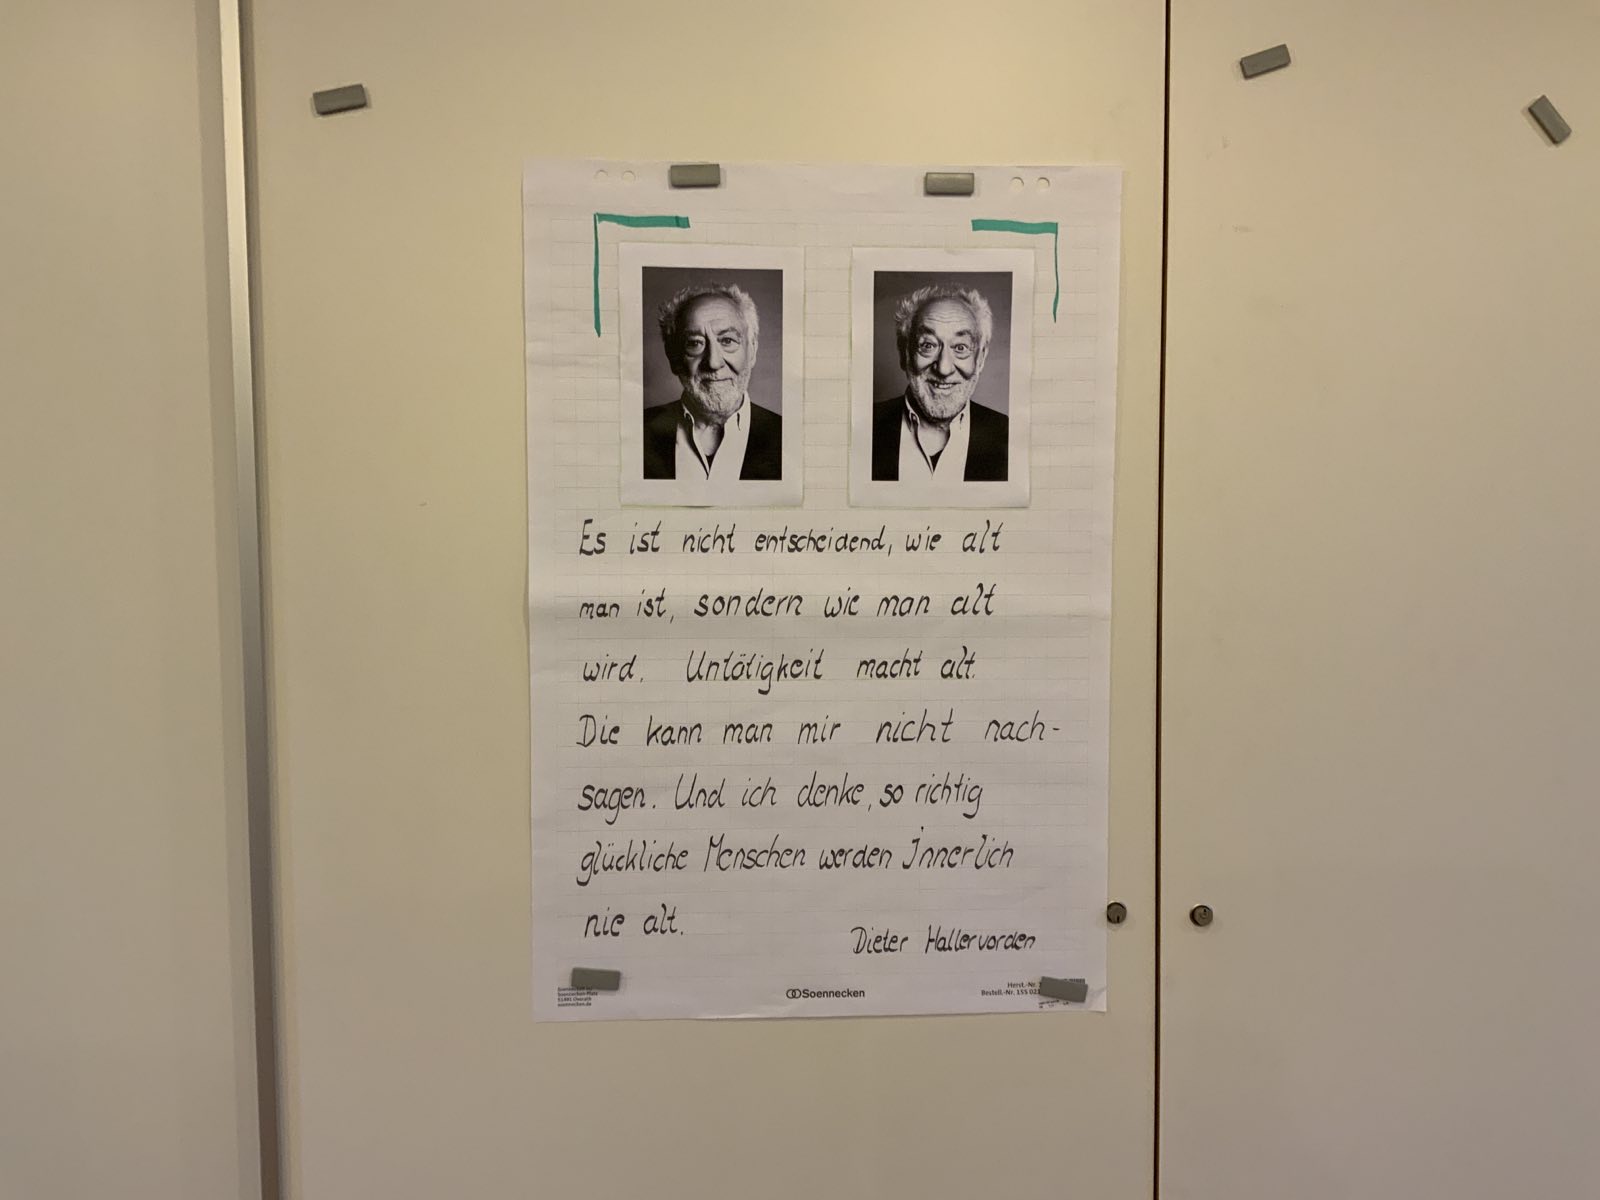 Es ist nicht entscheidend, wie alt
man ist, sondern wie man alt
wird. Untätigkeit macht alt.
Die kann man mir nicht nach-
sagen. Und ich denke, so richtig
glückliche Menschen werden innerlich
nie alt.
Dieter Hallervorden
Soennecken-Platz
51491 Overath
soennecken.de
Soennecken
Herst.-Nr.
Bestell.-Nr. 155 021